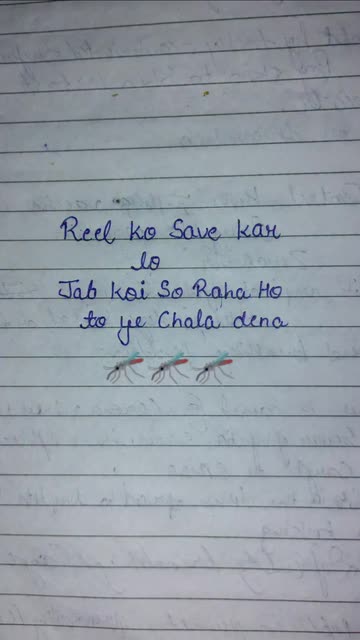 Reel ko Save kar
lo
Jab koi So Raha Ho
to ye Chala dena
🦟🦟🦟